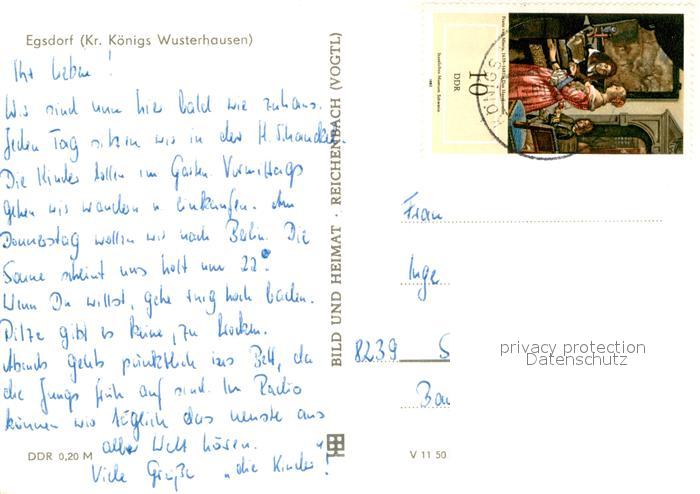 Egsdorf (Kr. Königs Wusterhausen)
Ihr Lieben!
Wir sind nun hier bald wie zuhaus.
Jeden Tag sitzen wir in der H.
Die Kinder tollen im Garten. Vormittags
gehen wir wandern u. einkaufen. Am
Donnerstag wollen wir nach Berlin. Die
Sonne scheint uns holt nun 22°.
Wenn Du willst, gehe ruhig hoch baden.
Pilze gibt es keine, zu trocken.
Abends gehts pünktlich ins Bett, da
die Jungs früh auf sind. Im Radio
können wir täglich das neuste aus
aller Welt hören.
Viele Grüße "die Kinder"!
DDR 0,20 M
BILD UND HEIMAT · REICHENBACH (VOGTL)
V 11 50
DDR
10
Staatliches Museum Schwerin
Frau
Inge
8239 S
Bau
privacy protection
Datenschutz